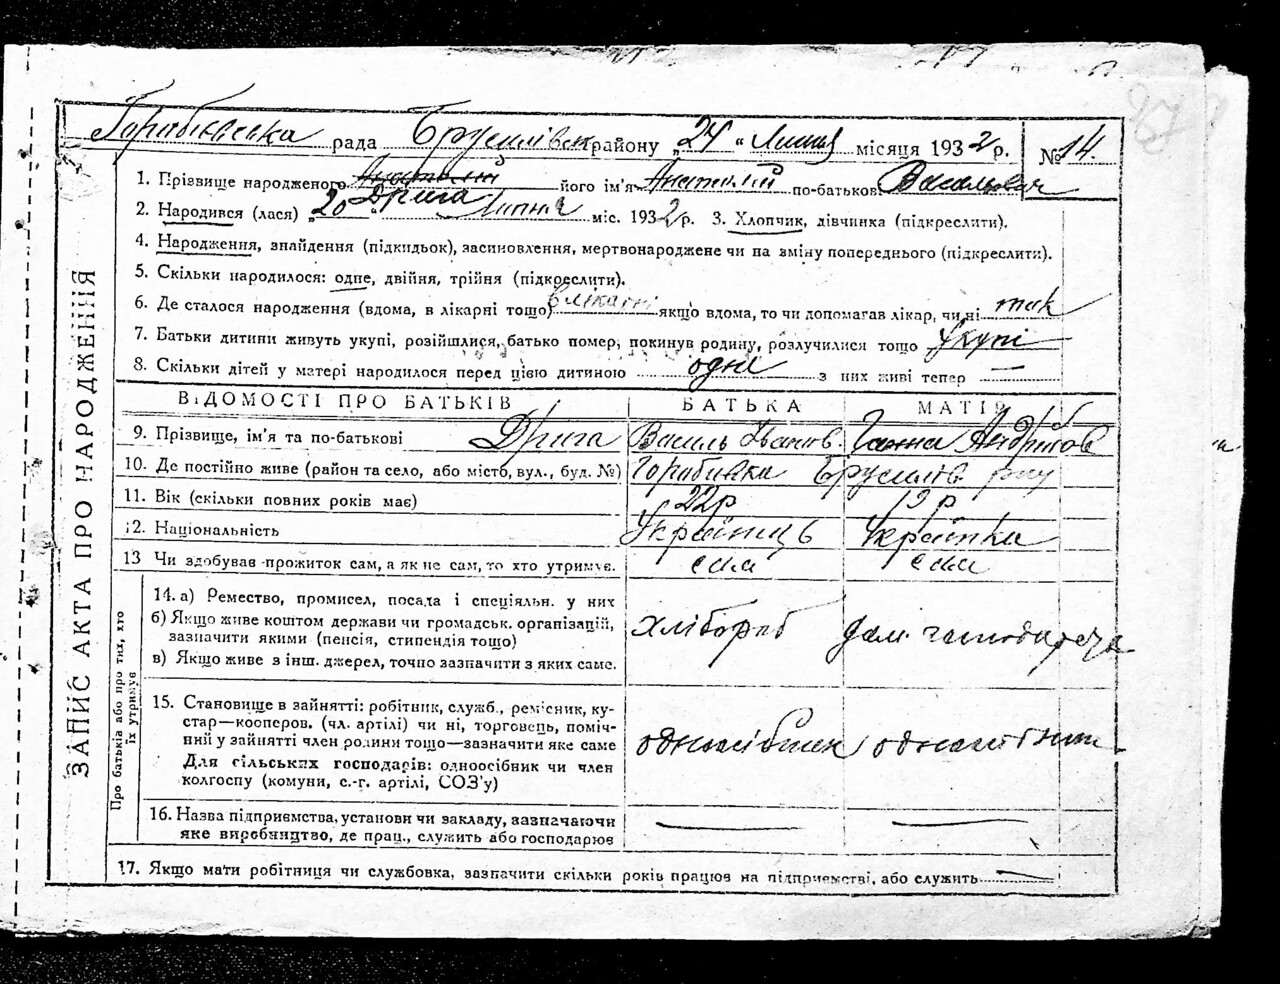 Горабіївська рада Брусилівськ району „24" Липня місяця 1932 р. № 14.
ЗАПИС АКТА ПРО НАРОДЖЕННЯ
1. Прізвище народженого Анатолій Дрига його ім'я Анатолій по-батькові Васильович
2. Народився (лася) „20" Липня міс. 1932 р. 3. Хлопчик, дівчинка (підкреслити).
4. Народження, знайдення (підкидьок), засиновлення, мертвонароджене чи на зміну попереднього (підкреслити).
5. Скільки народилося: одне, двійня, трійня (підкреслити).
6. Де сталося народження (вдома, в лікарні тощо) в лікарні якщо вдома, то чи допомагав лікар, чи ні так
7. Батьки дитини живуть укупі, розійшлися, батько помер, покинув родину, розлучилися тощо Укупі
8. Скільки дітей у матері народилося перед цією дитиною одне з них живі тепер —
ВІДОМОСТІ ПРО БАТЬКІВ БАТЬКА МАТІР
9. Прізвище, ім'я та по-батькові Дрига Василь Іванов. Ганна Андріїв
10. Де постійно живе (район та село, або місто, вул., буд. №) Горабіївка Брусилів. р-ну
11. Вік (скільки повних років має) 22 р 19 р
12. Національність Українець Українка
13 Чи здобував прожиток сам, а як не сам, то хто утримує. сам сама
Про батьків або про тих, хто їх утримує
14. а) Ремество, промисел, посада і спеціяльн. у них
б) Якщо живе коштом держави чи громадськ. організацій,
зазначити якими (пенсія, стипендія тощо) хлібороб дом. господарка
в) Якщо живе з інш. джерел, точно зазначити з яких саме.
15. Становище в зайнятті: робітник, служб., ремісник, ку-
стар—кооперов. (чл. артілі) чи ні, торговець, поміч-
ний у зайнятті член родини тощо—зазначити яке саме одноосібник одноосібник
Для сільських господарів: одноосібник чи член
колгоспу (комуни, с.-г. артілі, СОЗ'у)
16. Назва підприємства, установи чи закладу, зазначаючи
яке виробництво, де прац., служить або господарює — —
17. Якщо мати робітниця чи службовка, зазначити скільки років працює на підприємстві, або служить —